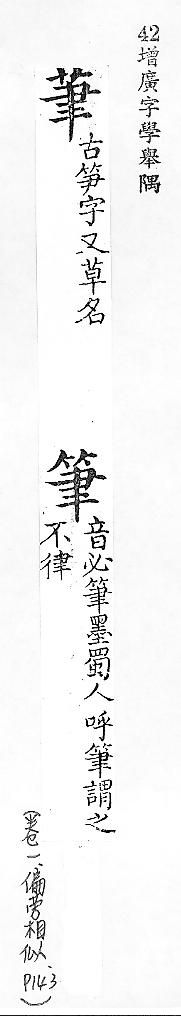 42增廣字學舉隅
茟古笋字又草名
筆音必筆墨蜀人呼筆謂之
不律
(卷一、偏旁相似、P143)